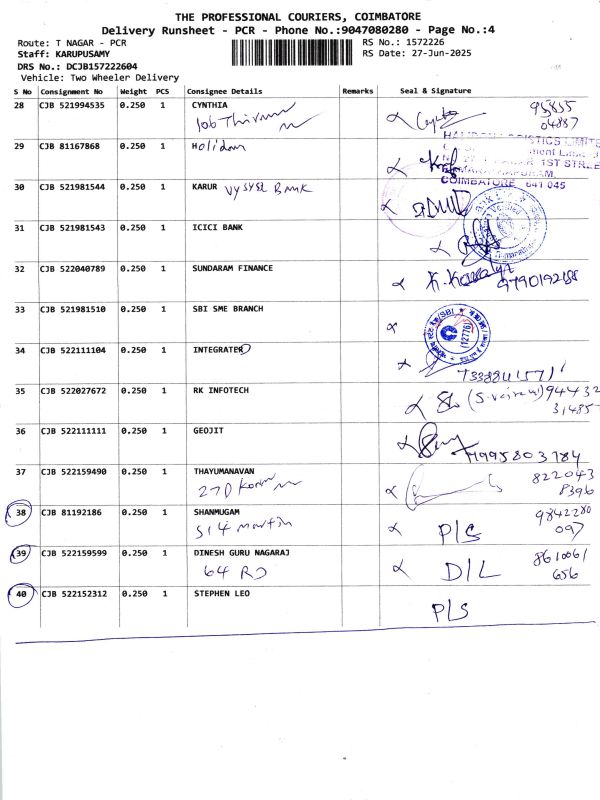 THE PROFESSIONAL COURIERS, COIMBATORE
Delivery Runsheet - PCR - Phone No.:9047080280 - Page No.:4
Route: T NAGAR - PCR RS No.: 1572226
Staff: KARUPUSAMY RS Date: 27-Jun-2025
DRS No.: DCJB157222604
Vehicle: Two Wheeler Delivery
S No Consignment No Weight PCS Consignee Details Remarks Seal & Signature
28 CJB 521994535 0.250 1 CYNTHIA 95855
106 04887
29 CJB 81167868 0.250 1 Holidon
1ST STREE
COIMBATORE 641 045
30 CJB 521981544 0.250 1 KARUR VYSYSL BANK
31 CJB 521981543 0.250 1 ICICI BANK
32 CJB 522040789 0.250 1 SUNDARAM FINANCE
9790192188
33 CJB 521981510 0.250 1 SBI SME BRANCH
(12776)
34 CJB 522111104 0.250 1 INTEGRATED
35 CJB 522027672 0.250 1 RK INFOTECH 94432
31485
36 CJB 522111111 0.250 1 GEOJIT
9995803784
37 CJB 522159490 0.250 1 THAYUMANAVAN 822043
27D 8396
38 CJB 81192186 0.250 1 SHANMUGAM 9842280
514 Martin P/S 097
39 CJB 522159599 0.250 1 DINESH GURU NAGARAJ 8610061
64 RD D/L 656
40 CJB 522152312 0.250 1 STEPHEN LEO
P/S